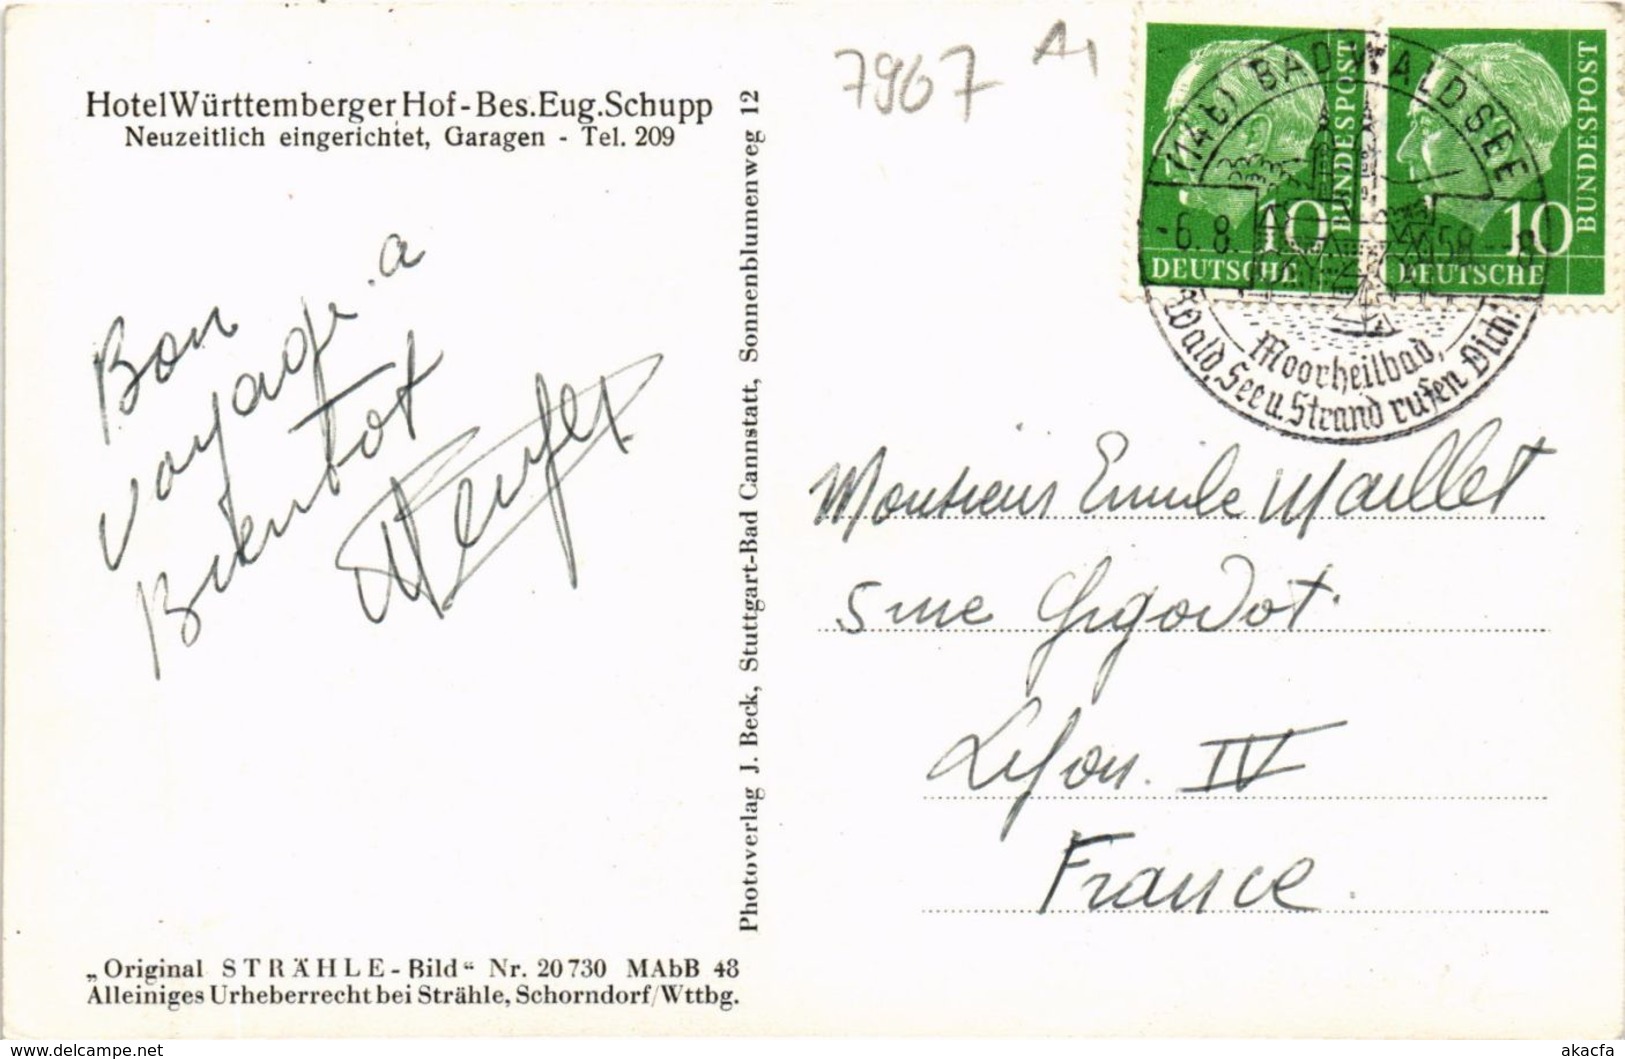 Hotel Württemberger Hof - Bes. Eug. Schupp
Neuzeitlich eingerichtet, Garagen - Tel. 209
Bon
voyage. a
Bientot
„Original STRÄHLE-Bild“ Nr. 20730 MAbB 48
Alleiniges Urheberrecht bei Strähle, Schorndorf/Wttbg.
Photoverlag J. Beck, Stuttgart-Bad Cannstatt, Sonnenblumenweg 12
7967 A1
10
DEUTSCHE
BUNDESPOST
10
DEUTSCHE
BUNDESPOST
(14b) BAD WALDSEE
-6.8.1958--8
Moorheilbad,
Wald, See u. Strand rufen Dich!
Monsieur Emile Maillet
5 rue Gigodot
Lyon. IV
France.
akacfa
delcampe.net